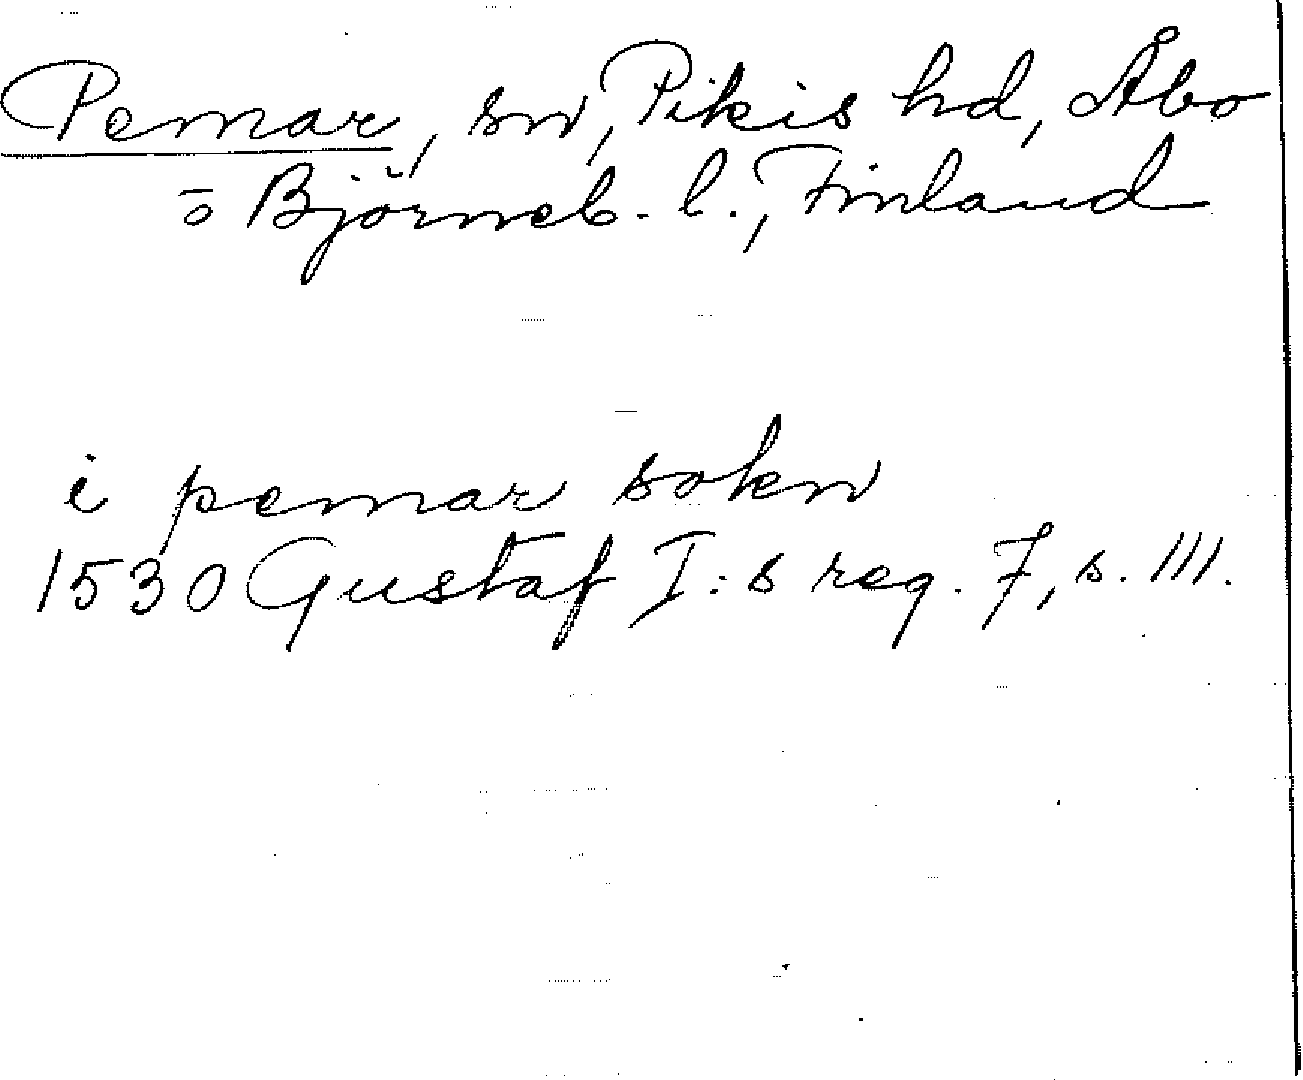 Pemar, sn, Pikis hd, Åbo
o Björneb. l., Finland
i pemar sokn
1530 Gustaf I:s reg. 7, s. 111.